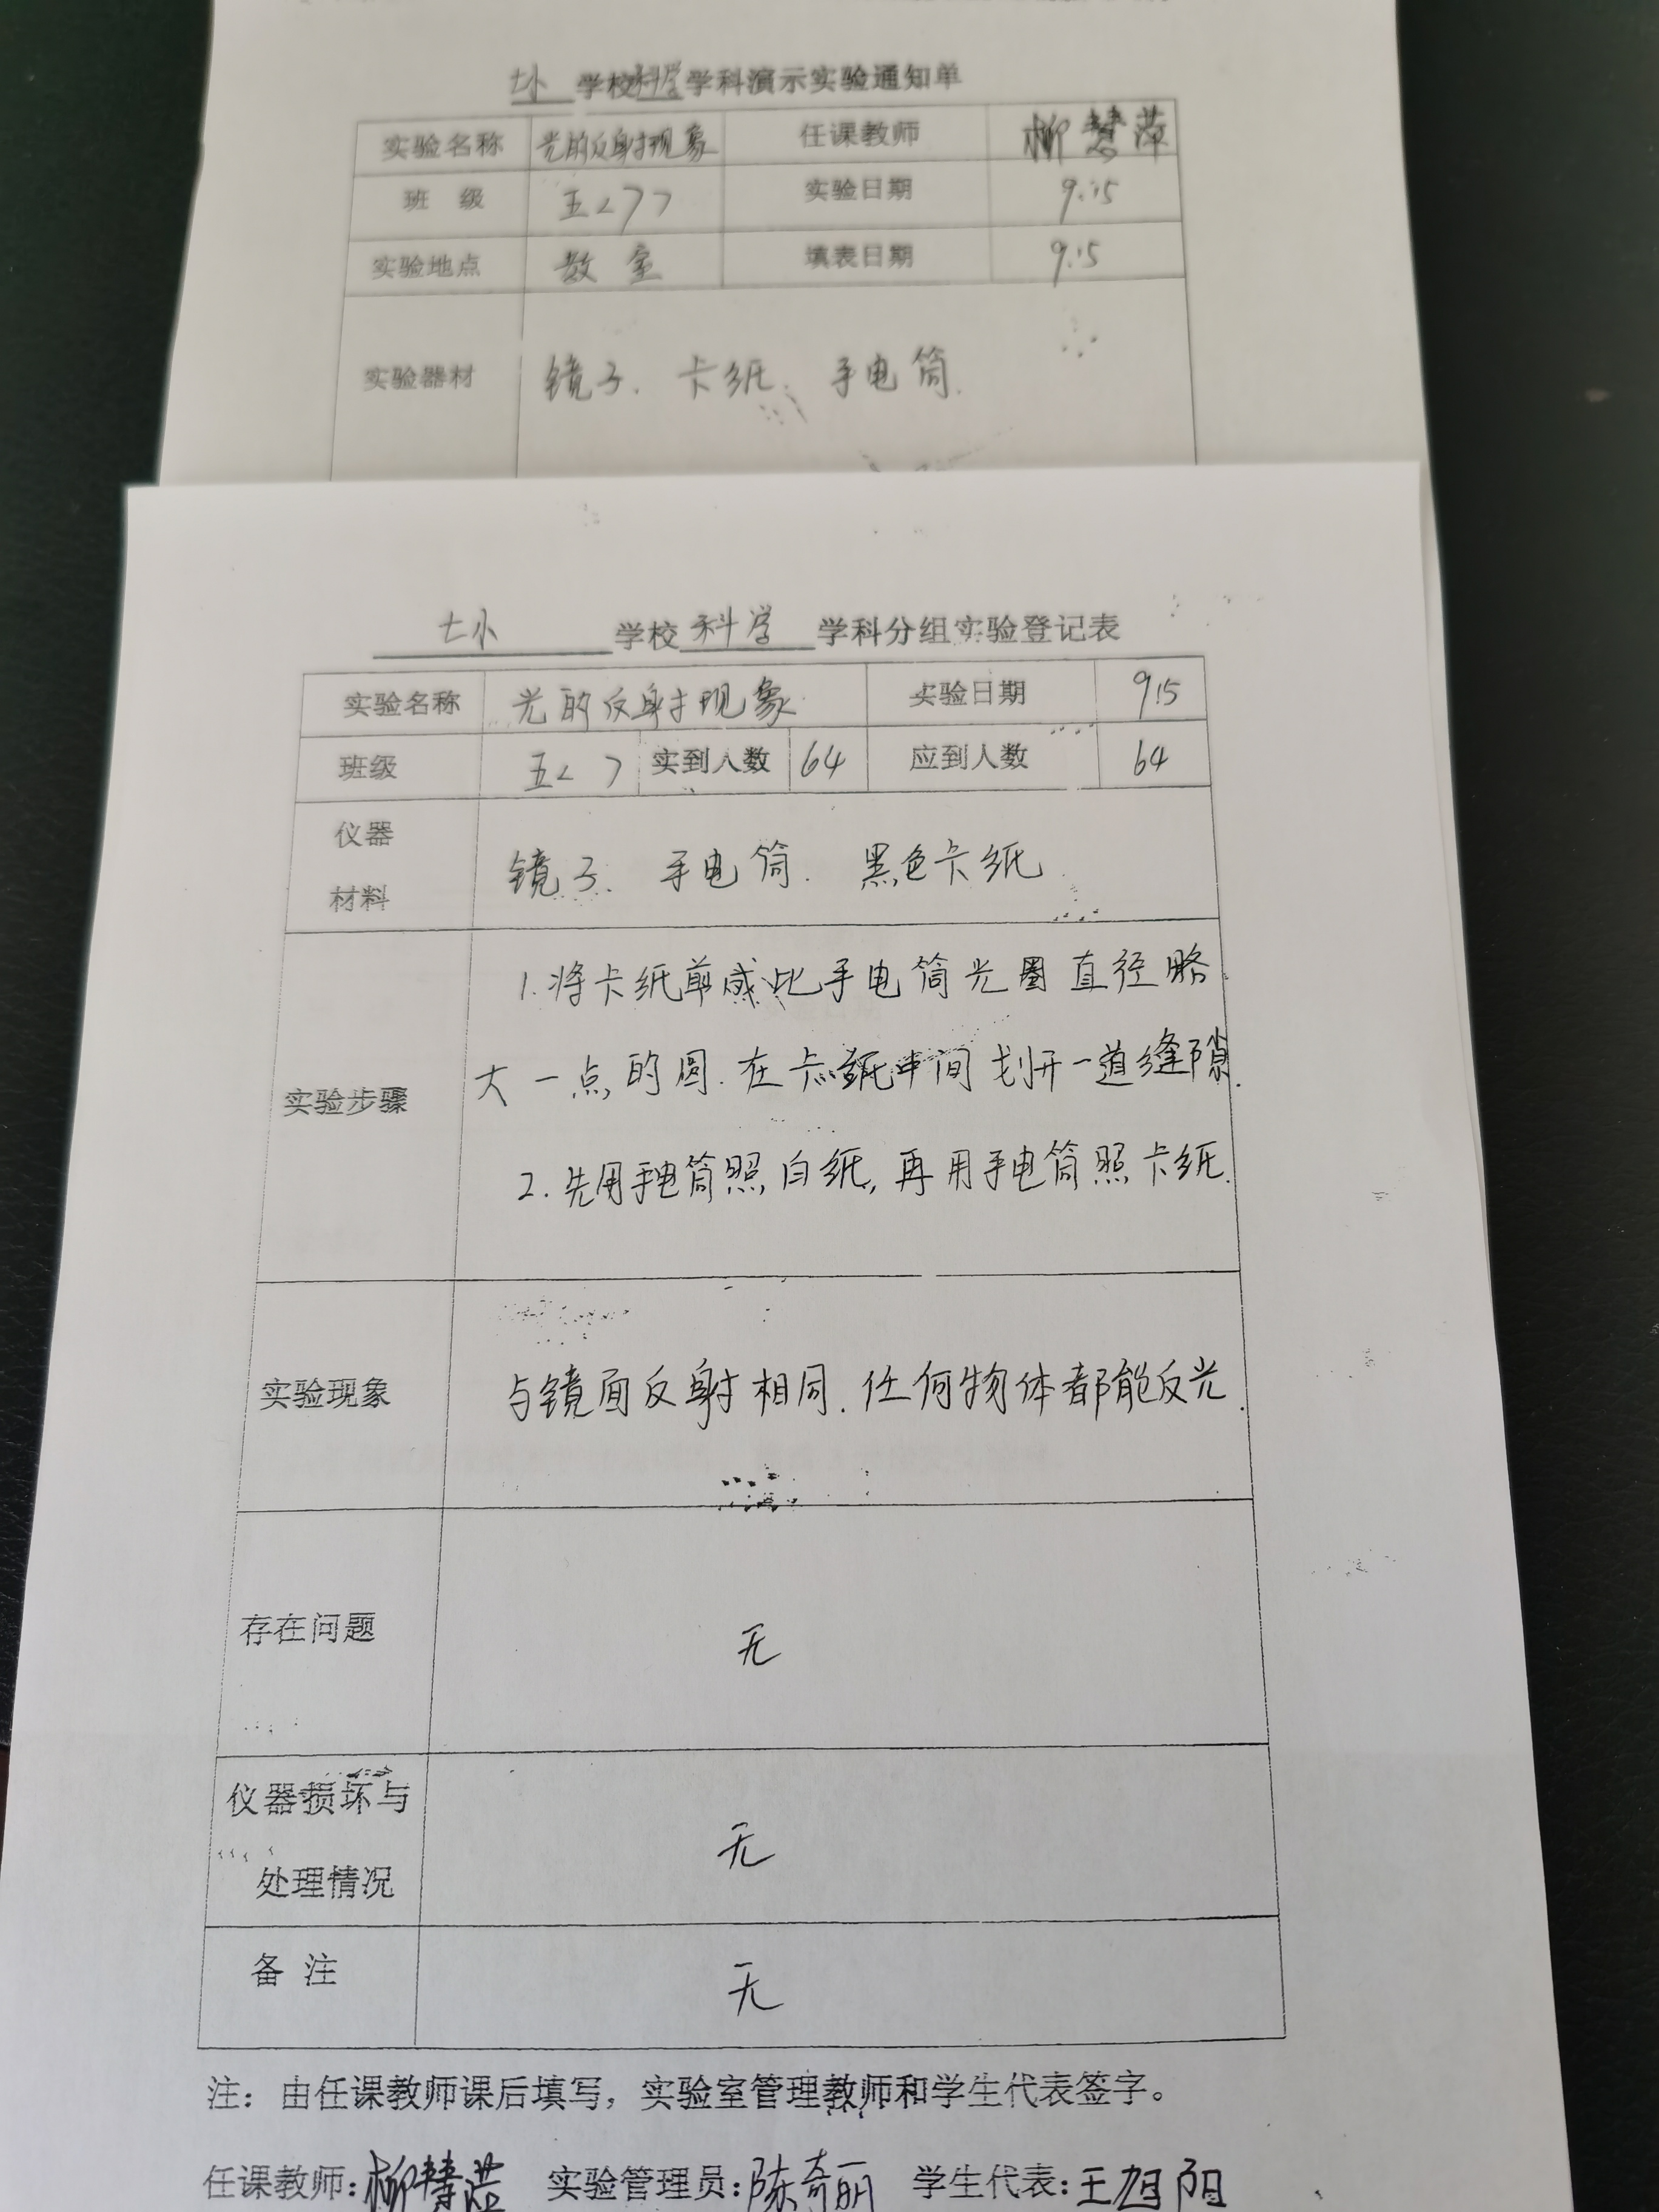 七小 学校 科学 学科演示实验通知单
实验名称 光的反射现象 任课教师 柳慧萍
班 级 五<7> 实验日期 9.15
实验地点 教室 填表日期 9.15
实验器材 镜子、卡纸、手电筒.
七小 学校 科学 学科分组实验登记表
实验名称 光的反射现象 实验日期 9.15
班级 五< > 实到人数 64 应到人数 64
仪器
材料
镜子、手电筒、黑色卡纸
实验步骤
1.将卡纸剪成比手电筒光圈直径略
大一点的圆.在卡纸中间划开一道缝隙.
2.先用手电筒照白纸,再用手电筒照卡纸.
实验现象 与镜面反射相同.任何物体都能反光.
存在问题 无
仪器损坏与
处理情况
无
备 注 无
注：由任课教师课后填写，实验室管理教师和学生代表签字。
任课教师:柳慧萍 实验管理员:陈奇丽 学生代表:王旭阳